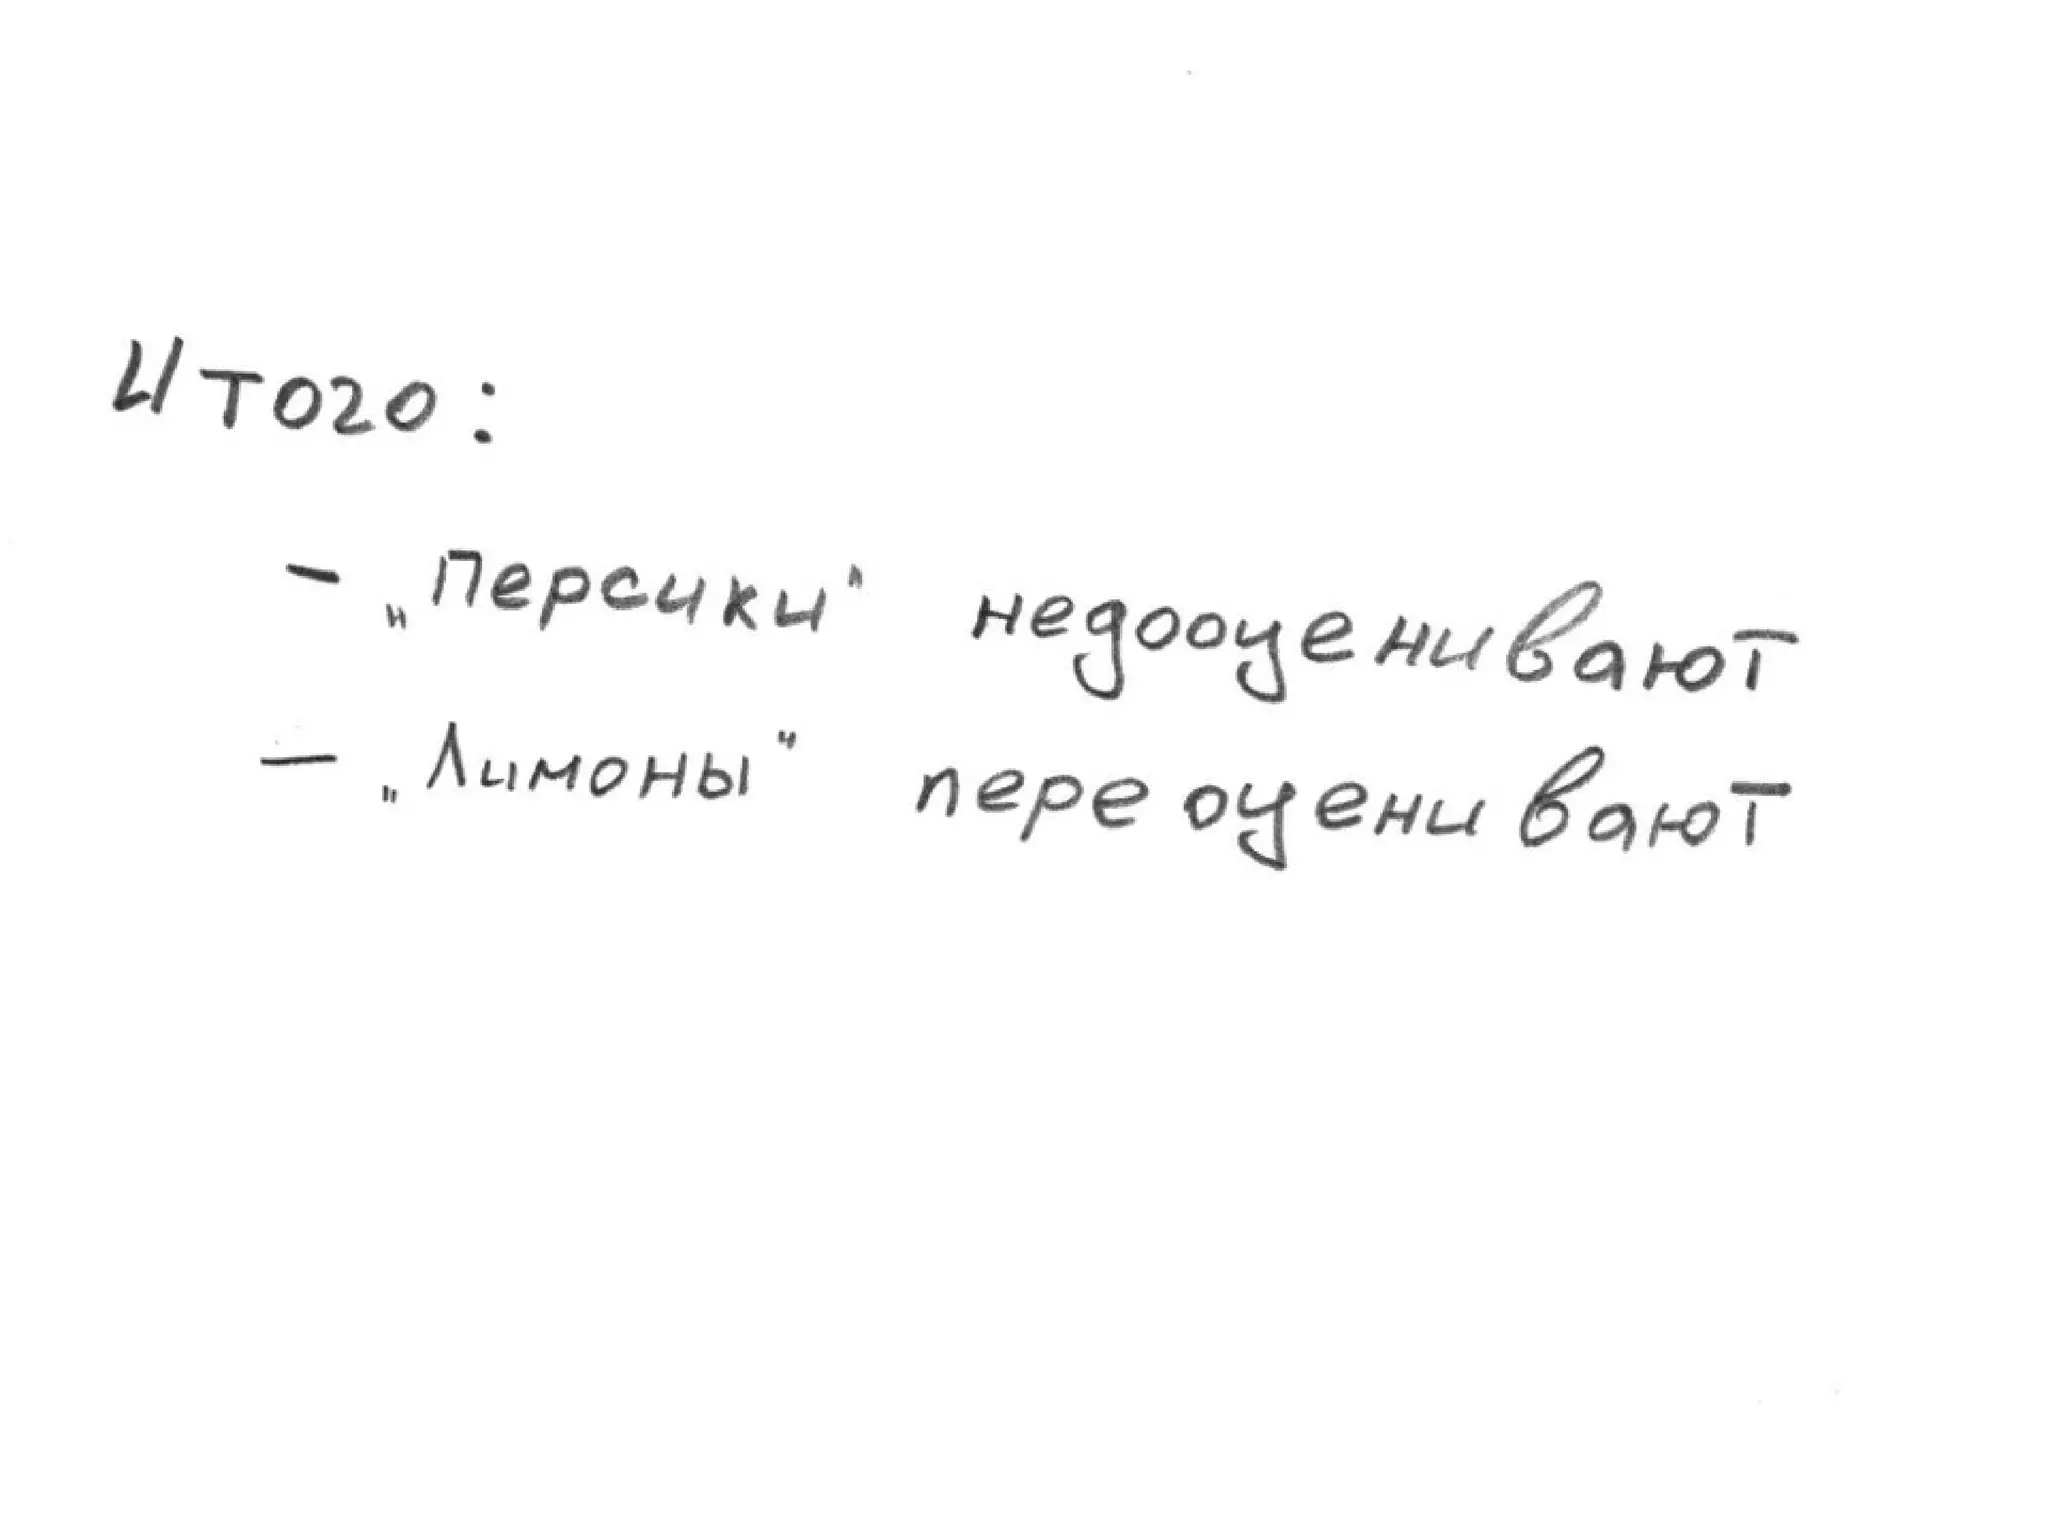 Итого:
- „Персики“ недооценивают
- „Лимоны“ переоценивают